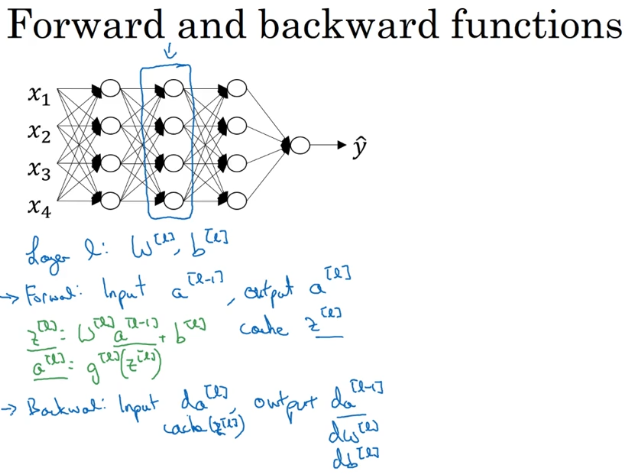 Forward and backward functions
x₁
x₂
x₃
x₄
ŷ
Layer l: W^[l], b^[l]
→ Forward: Input a^[l-1], output a^[l]
z^[l] = W^[l] a^[l-1] + b^[l] cache z^[l]
a^[l] = g^[l](z^[l])
→ Backward: Input da^[l], output da^[l-1]
cache(z^[l]) dW^[l]
db^[l]